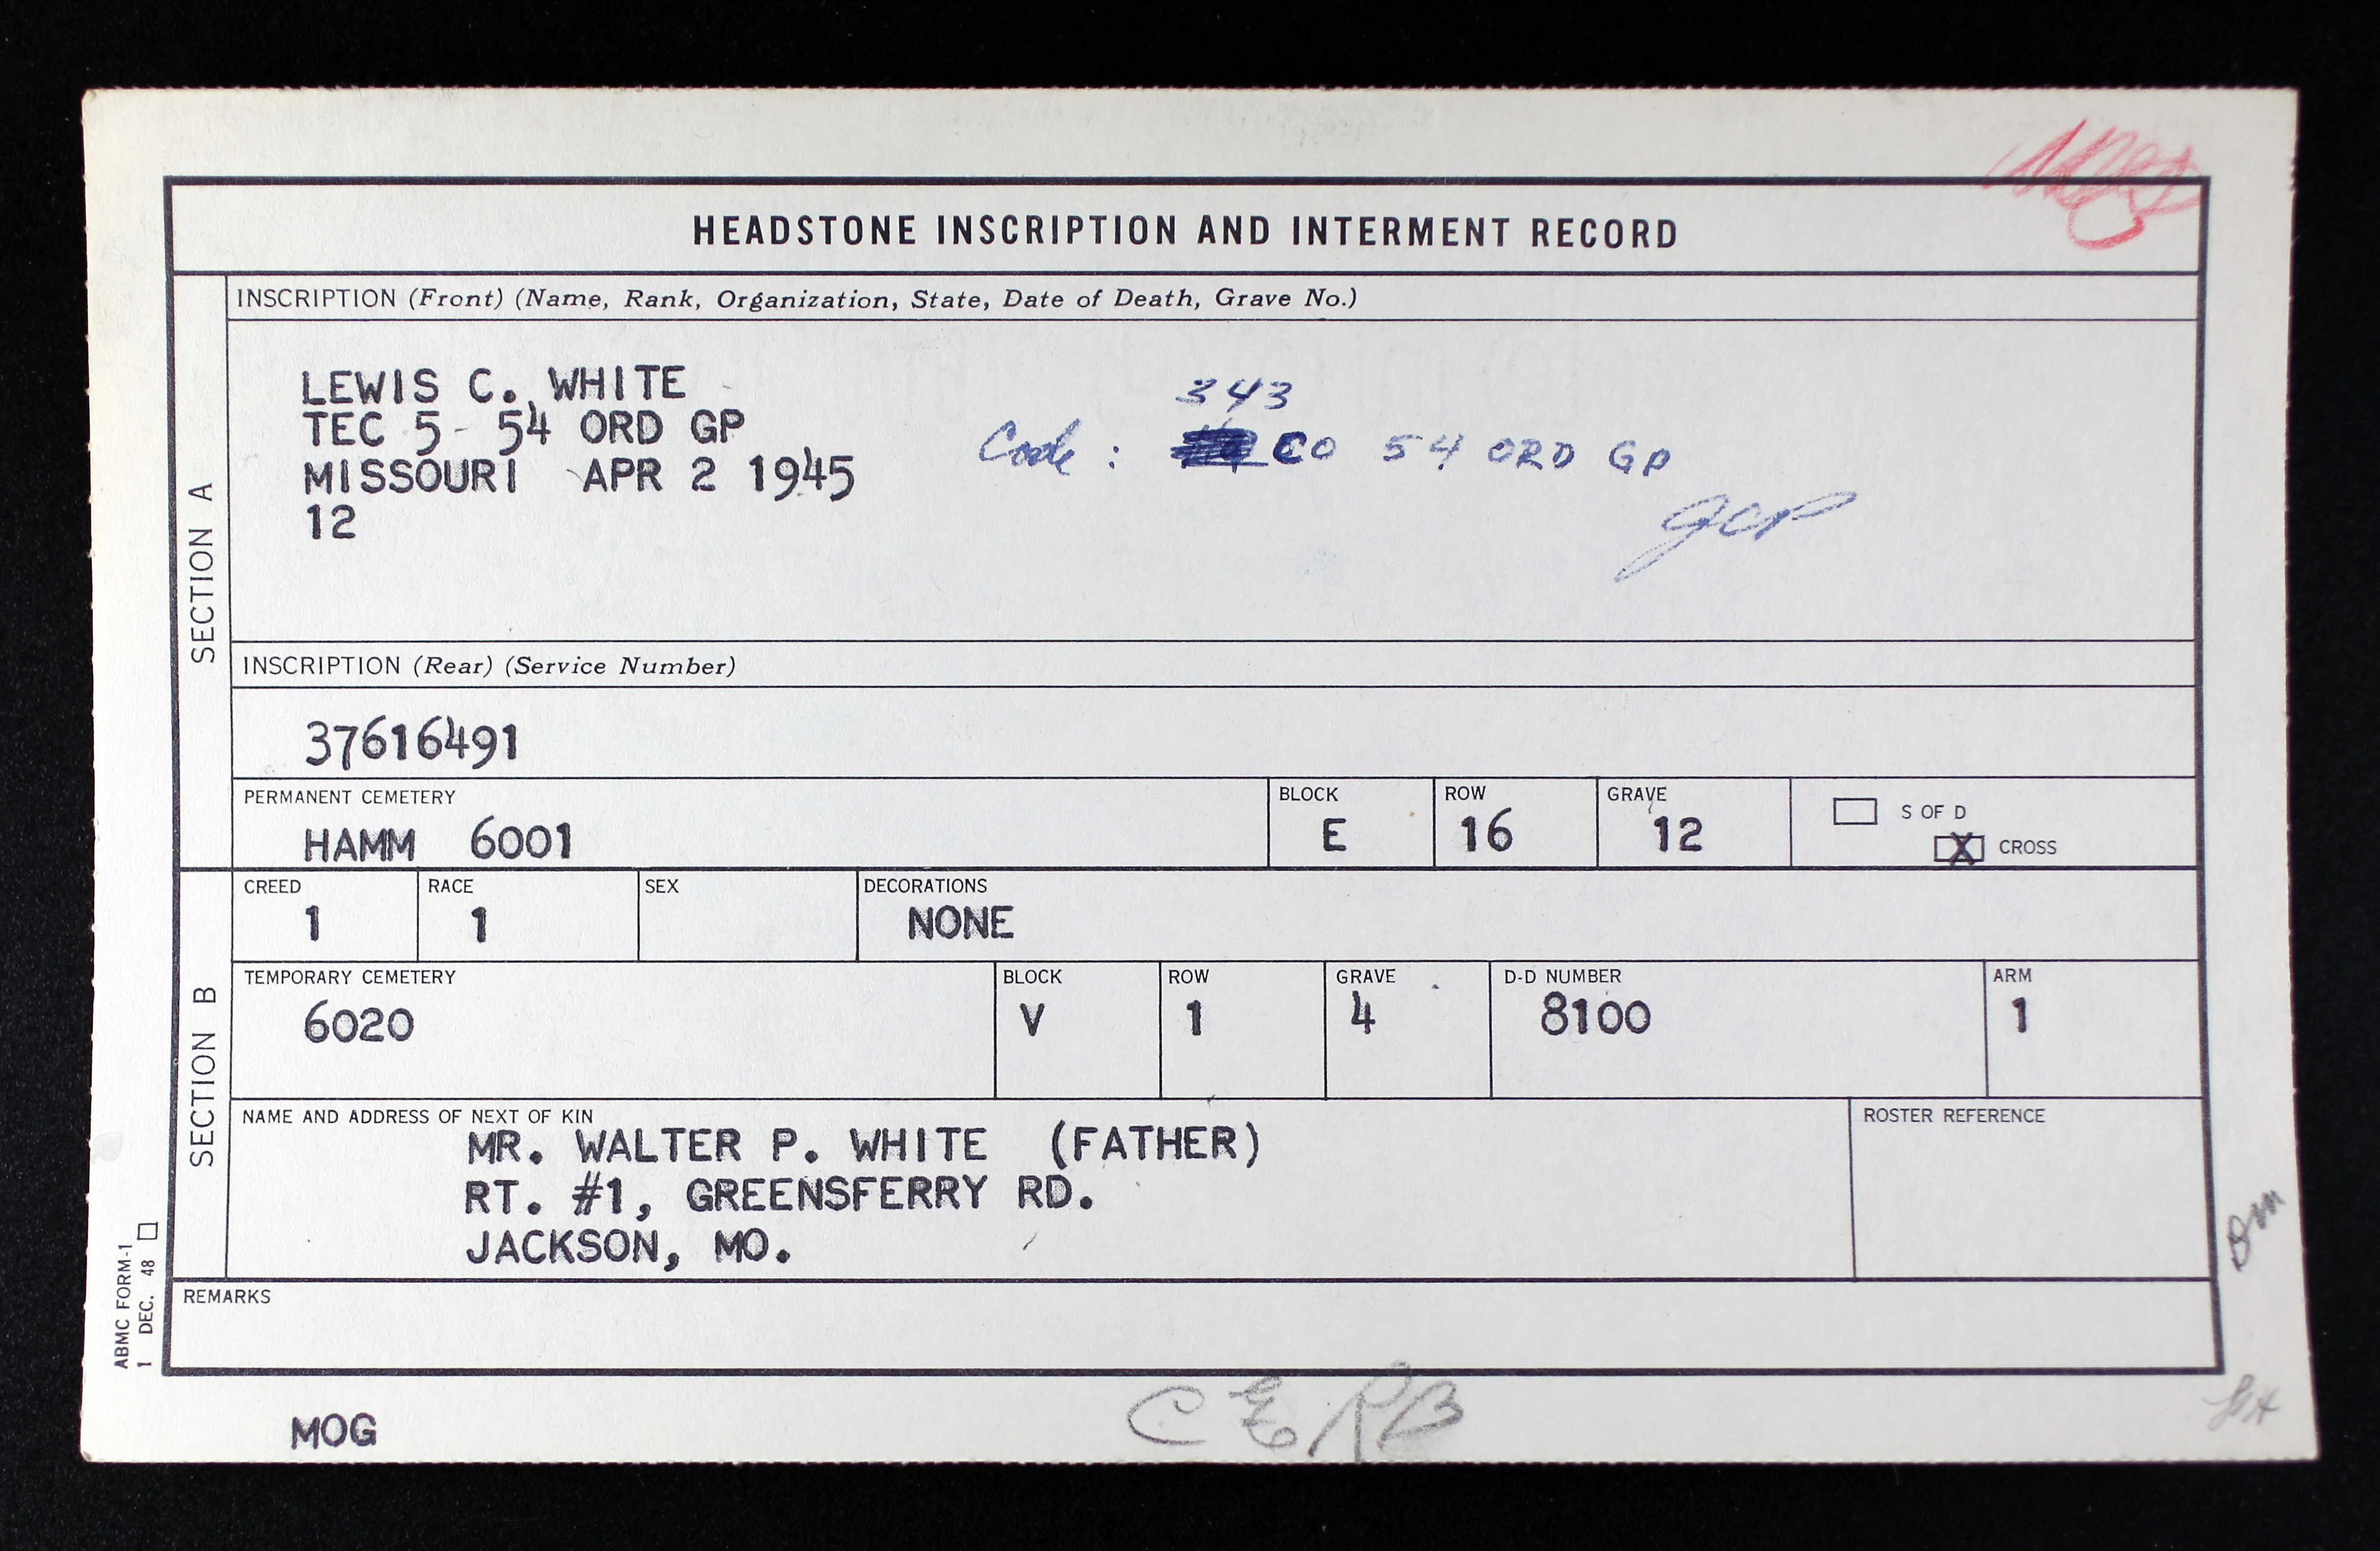 HEADSTONE INSCRIPTION AND INTERMENT RECORD
SECTION A
INSCRIPTION (Front) (Name, Rank, Organization, State, Date of Death, Grave No.)
LEWIS C. WHITE
TEC 5 54 ORD GP
MISSOURI APR 2 1945
12
343
Code: CO 54 ORD GP
JCP
INSCRIPTION (Rear) (Service Number)
37616491
PERMANENT CEMETERY BLOCK ROW GRAVE
HAMM 6001 E 16 12
S OF D
X CROSS
SECTION B
CREED RACE SEX DECORATIONS
1 1 NONE
TEMPORARY CEMETERY BLOCK ROW GRAVE D-D NUMBER ARM
6020 V 1 4 8100 1
NAME AND ADDRESS OF NEXT OF KIN ROSTER REFERENCE
MR. WALTER P. WHITE (FATHER)
RT. #1, GREENSFERRY RD.
JACKSON, MO.
REMARKS
ABMC FORM-1
1 DEC. 48
MOG